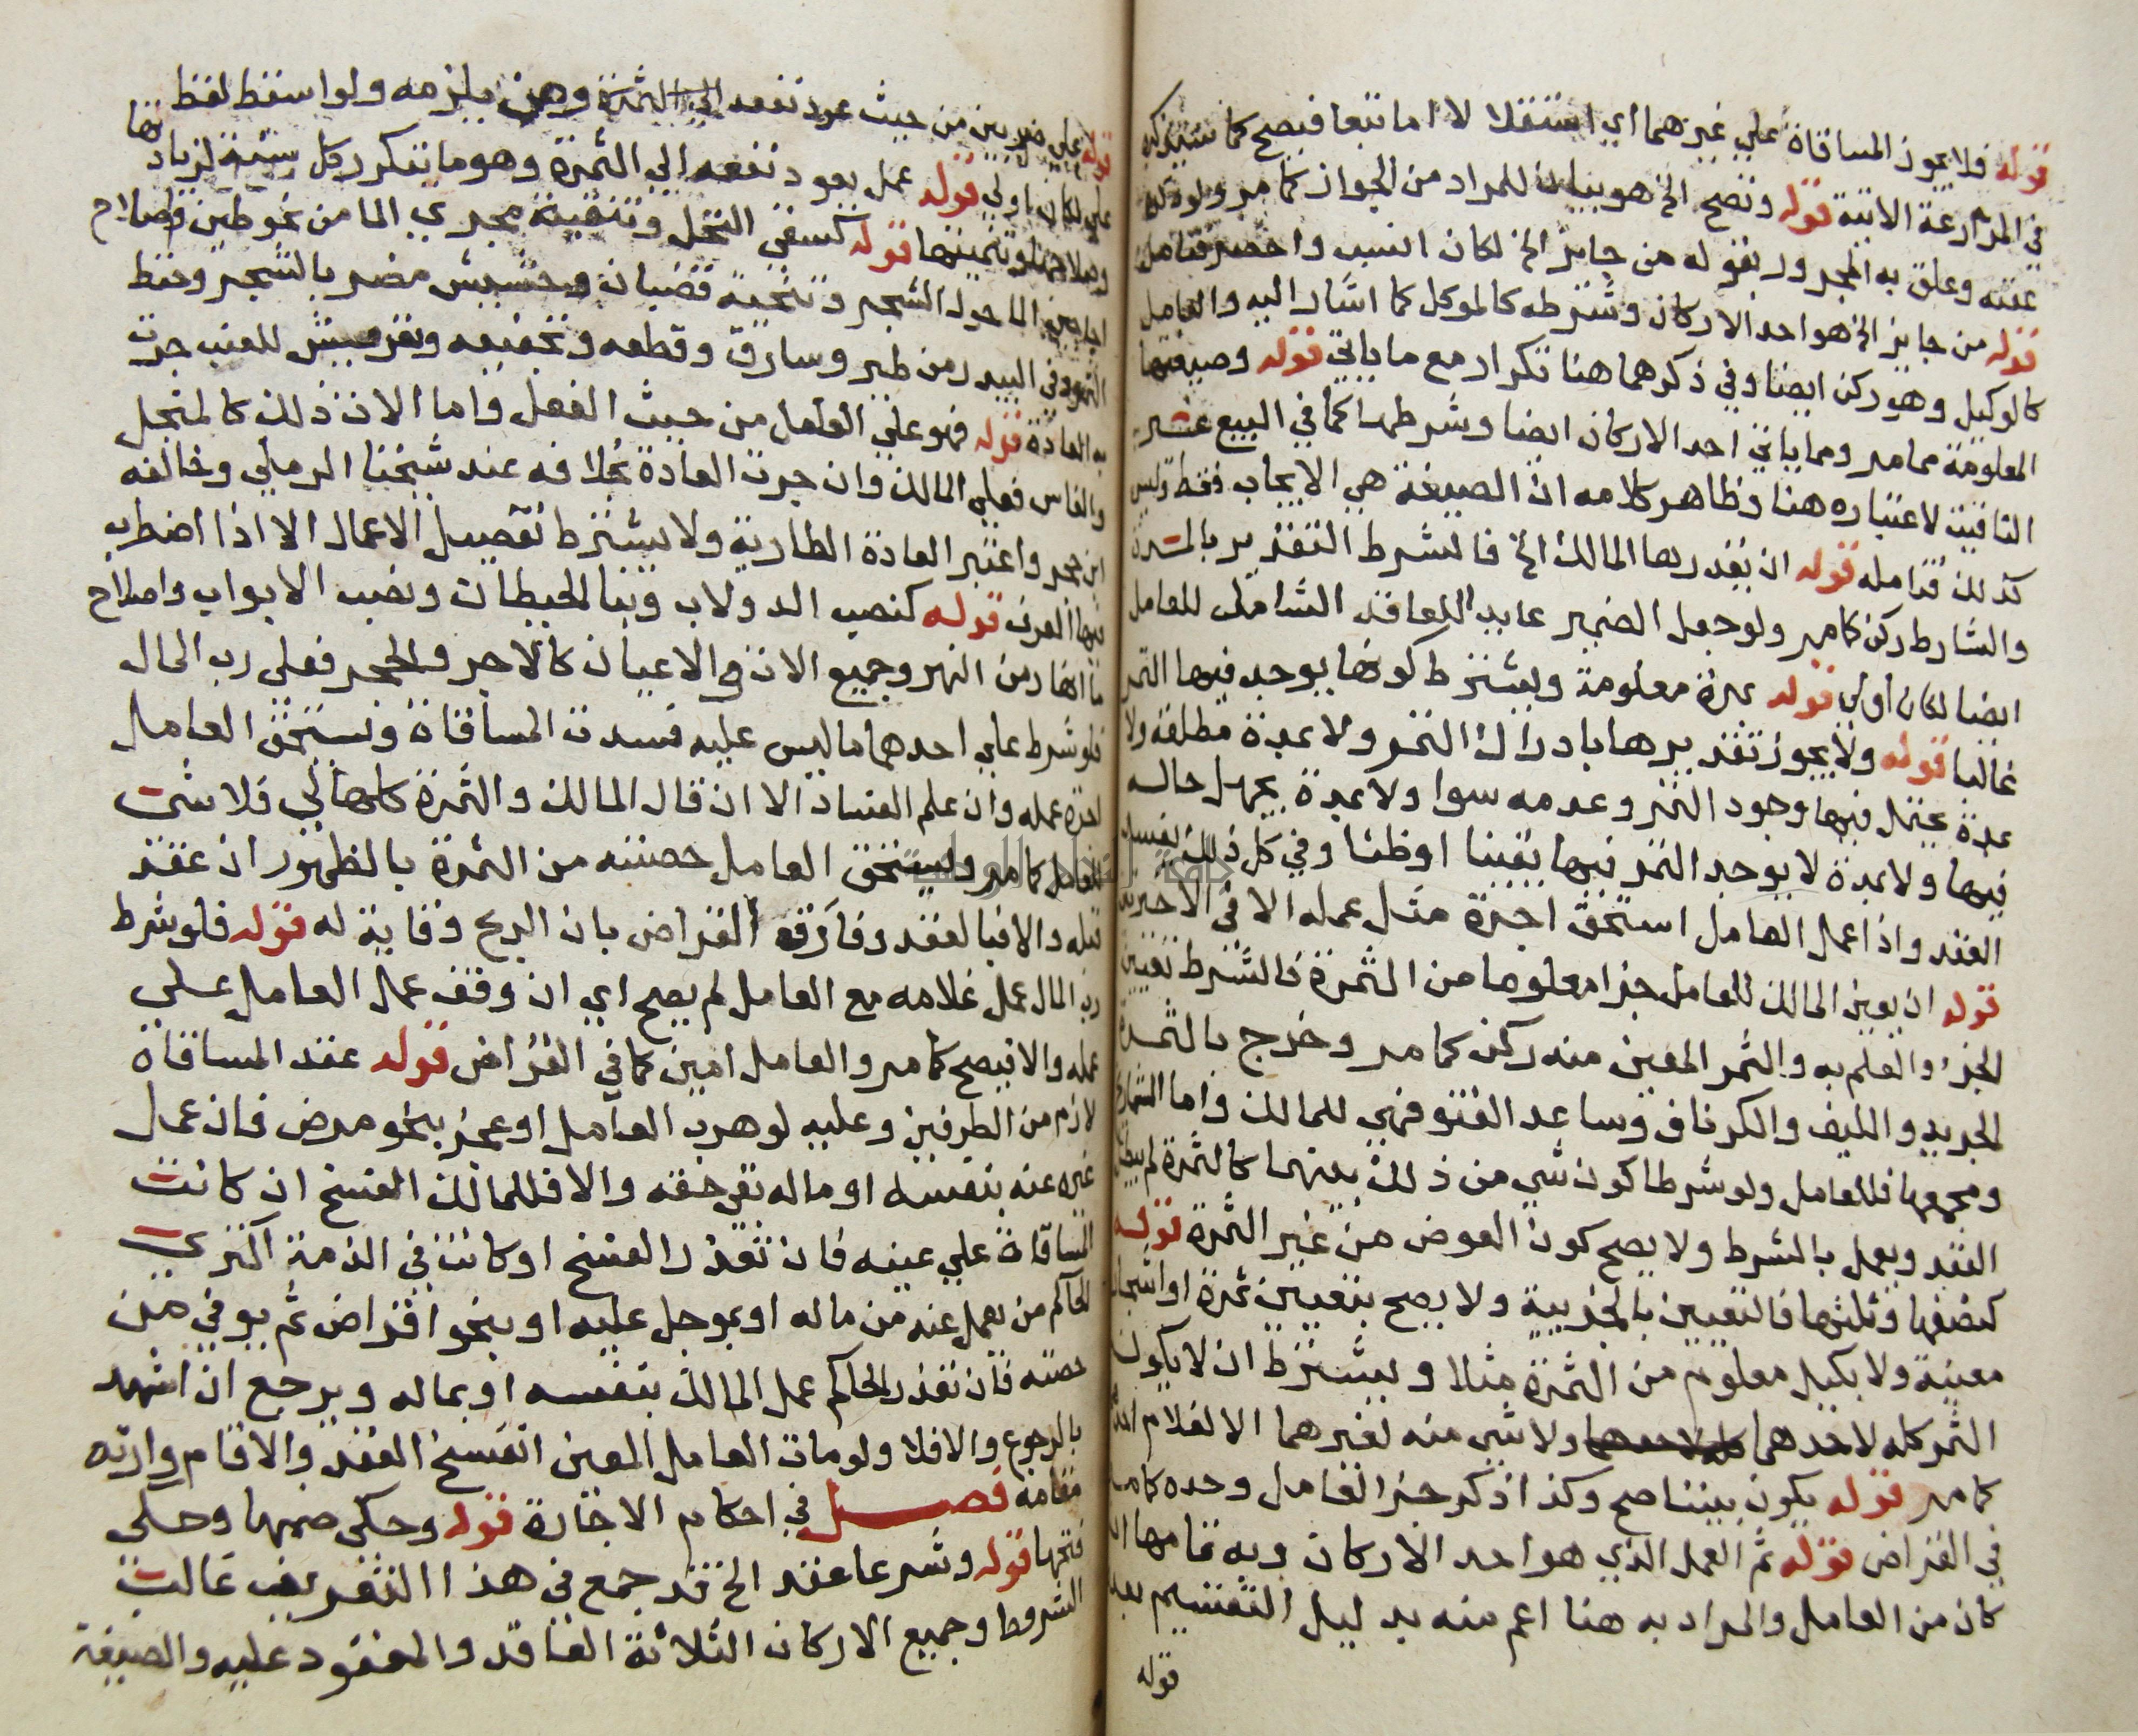 قوله فلا يجوز المساقاة علي غيرهما اي استقلالا اما تبعا فيصح كما سيذكره
في المزارعة الاتية قوله وتصح الخ هو بيان للمراد من الجواز كما مر ولو
عنه وعلق به المجرور بقوله من جايز الخ لكان انسب واخصر فتامل
قوله من جايز الخ هو احد الاركان وشرطه كالموكل كما اشار اليه والعامل
كالوكيل وهو ركن ايضا وفي ذكرهما هنا تكرار مع ما ياتي قوله وصيغتها
المعلومة مما مر ومما ياتي احد الاركان ايضا وشرطها كما في البيع غير
التاقيت لاعتباره هنا وظاهر كلامه ان الصيغة هي الايجاب فقط وليس
كذلك فتامله قوله ان يقدرها المالك الخ فالشرط التقدير بالمدة
والشارط ركن كما مر ولو جعل الضمير عايد اللعاقد الشامل للعامل
ايضا لكان اولي قوله بمدة معلومة ويشترط كونها يوجد فيها الثمر
غالبا قوله ولا يجوز تقديرها بادراك الثمر ولا بمدة مطلقة ولا
بمدة يحتمل فيها وجود الثمر وعدمه سوا ولا بمدة يجهل حاله
فيها ولا بمدة لا يوجد الثمر فيها يقينا او ظنا وفي كل ذلك يفسد
العقد واذا عمل العامل استحق اجرة مثل عمله الا في الاخيرتين
قوله ان يعين المالك للعامل جزا معلوما من الثمرة فالشرط تعيين
الجزء والعلم به والثمر المعين منه ركن كما مر وخرج بالثمرة
الجريد والليف والكرناف وساعد القنو فهي للمالك واما الشماريخ
ومجمعها فللعامل ولو شرطا كون شي من ذلك بينهما كالثمرة لم يبطل
العقد ويعمل بالشرط ولا يصح كون العوض من غير الثمرة قوله
كنصفها وثلثها فالتعيين بالجزيية ولا يصح بتعيين ثمرة او اشجار
معينة ولا بكيل معلوم من الثمرة مثلا ويشترط ان لا يكون
الثمر كله لاحدهما ولا شي منه لغيرهما الا لغلام
كما مر قوله يكون بيننا صح وكذا ذكر جز العامل وحده كما مر
في القراض قوله ثم العمل الذي هو احد الاركان وبه تمامها
كان من العامل والمراد به هنا اعم منه بدليل التقسيم بعد
قوله
قوله علي ضربين من حيث عود نفعه الي الثمرة وهن يلزمه ولو اسقط لفظ
علي لكان اولي قوله عمل يعود نفعه الي الثمرة وهو ما يتكرر كل سنة لزيادتها
وصلاحها وتنميتها قوله كسقي النخل وتنقية مجري الما من نحو طين واصلاح
اجاجين الما حول الشجر وتنحية قضبان وحشيش مضر بالشجر وحفظ
الثمر وفي البيدر من طير وسارق وقطعه وتجفيفه وتعريش للعنب جرت
به العادة قوله فهو علي العامل من حيث الفعل واما الات ذلك كالمنجل
والفاس فعلي المالك وان جرت العادة بخلافه عند شيخنا الرملي وخالفه
ابن حجر واعتبر العادة الطارية ولا يشترط تفصيل الاعمال الا اذا اضطرب
فيها العرف قوله كنصب الدولاب وبنا الحيطان ونصب الابواب واصلاح
ما انهار من النهر وجميع الالات والاعيان كالاجر والحجر فعلي رب المال
فلو شرط علي احدهما ما ليس عليه فسدت المساقاة ويستحق العامل
اجرة عمله وان علم الفساد الا ان قال المالك والثمرة كلها لي فلا شي
للعامل كما مر ويستحق العامل حصته من الثمرة بالظهور ان عقد
قبله والا فبالعقد وفارق القراض بان الربح وقاية له قوله فلو شرط
رب المال عمل غلامه مع العامل لم يصح اي ان وقف عمل العامل علي
عمله والا فيصح كما مر والعامل امين كما في القراض قوله عقد المساقاة
لازم من الطرفين وعليه لو هرب العامل او عجز بنحو مرض فان عمل
غيره عنه بنفسه او ماله بقي حقه والا فللمالك الفسخ ان كانت
المساقاة علي عينه فان تعذر الفسخ او كانت في الذمة اكتري
الحاكم من يعمل عنه من ماله او بموجل عليه او بنحو اقتراض ثم يوفي من
حصته فان تعذر الحاكم عمل المالك بنفسه او بماله ويرجع ان اشهد
بالرجوع والا فلا ولو مات العامل المعين انفسخ العقد والا قام وارثه
مقامه فصل في احكام الاجارة قوله وحكي ضمها وحكي
فتحها قوله وشرعا عقد الخ قد جمع في هذا التعريف غالب
الشروط وجميع الاركان الثلاثة العاقد والمعقود عليه والصيغة